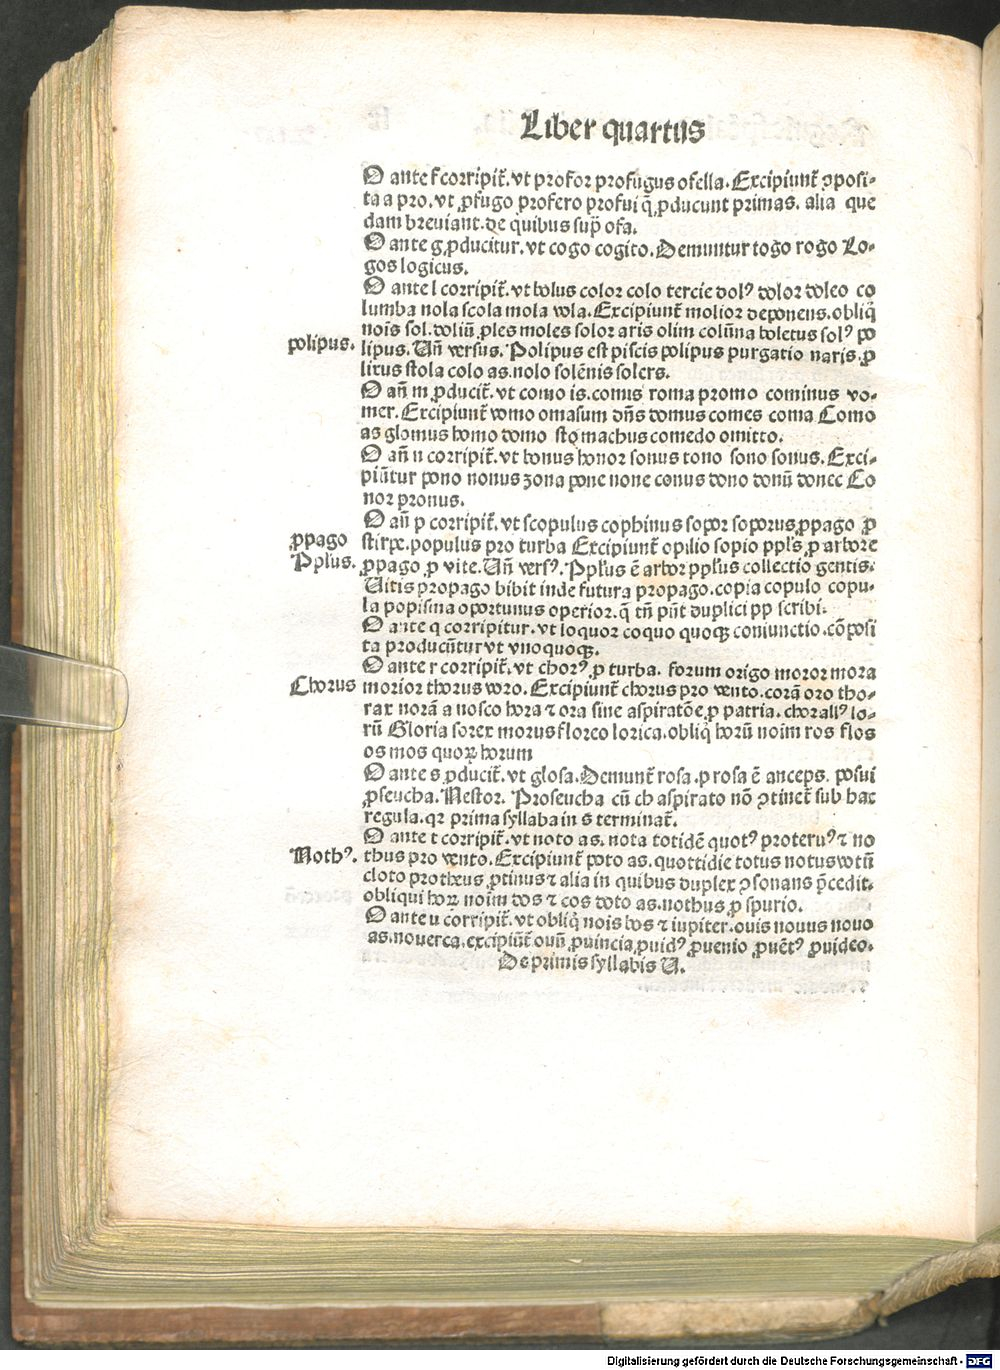 Liber quartus
O ante f corripit̃. vt profor profugus ofella. Excipiunt̃ ꝯposi-
ta a pro. vt ꝓfugo profero profui q̃ ꝓducunt primas. alia que
dam breuiant. de quibus sup̃ ofa.
O ante g ꝓducitur. vt cogo cogito. Demuntur togo rogo Lo-
gos logicus.
O ante l corripit̃. vt bolus color colo tercie dolꝰ dolor doleo co
lumba nola scola mola vola. Excipiunt̃ molior deponens. obliq̃
nois sol. doliũ ꝓles moles solor aris olim colũna boletus solꝰ po
polipus. lipus. Uñ versus. Polipus est piscis polipus purgatio naris. ꝓ
lixus stola colo as. nolo solẽnis solers.
O añ m ꝓducit̃. vt como is. comis roma promo cominus vo-
mer. Excipiunt̃ vomo omasum dñs domus comes coma Como
as glomus homo domo stomachus comedo omitto.
O añ n corripit̃. vt bonus honor sonus tono sono sonus. Exci-
piũtur pono nonus zona pone none conus dono donũ donec Co
nor pronus.
O añ p corripit̃. vt scopulus cophinus sopor soporus ꝓpago ꝓ
ꝓpago stirpe. populus pro turba Excipiunt̃ opilio sopio ppls̃ ꝓ arbore
Ppl̃us. ꝓpago ꝓ vite. Uñ versꝰ. Ppl̃us ẽ arbor ppl̃us collectio gentis.
Uitis propago bibit inde futura propago. copia copulo copu-
la popisma oportunus operior. q̃ tñ pñt duplici pp scribi.
O ante q corripitur. vt loquor coquo quoqꝫ coniunctio. cõposi
ta producũtur vt vnoquoqꝫ.
O ante r corripit̃. vt chorꝰ ꝓ turba. forum origo moror mora
Chorus morior thorus voro. Excipiunt̃ chorus pro vento. corã oro tho-
rax norã a nosco hora ⁊ ora sine aspiratõe ꝓ patria. chorallꝰ lo-
rũ Gloria sorex morus floreo lorica. obliq̃ horũ noim ros flos
os mos quoꝝ horum
O ante s ꝓducit̃. vt glosa. Demunt̃ rosa. prosa ẽ anceps. posui
ꝓseucha. Nestor. Proseucha cũ ch aspirato nõ ꝯtinet̃ sub hac
regula. qꝛ prima syllaba in s terminat̃.
O ante t corripit̃. vt noto as. nota totidẽ quotꝰ proteruꝰ ⁊ no
Nothꝰ. thus pro vento. Excipiunt̃ poto as. quottidie totus notus votũ
cloto protheus ꝓtinus ⁊ alia in quibus duplex ꝯsonans p̃cedit.
obliqui hoꝝ noim dos ⁊ cos doto as. nothus ꝓ spurio.
O ante u corripit̃. vt obliq̃ nois bos ⁊ iupiter. ouis nouus nouo
as. nouerca. excipiũt̃ ouũ ꝓuincia ꝓuidꝰ ꝓuenio ꝓuẽtꝰ ꝓuideo.
De primis syllabis U.
Digitalisierung gefördert durch die Deutsche Forschungsgemeinschaft - DFG